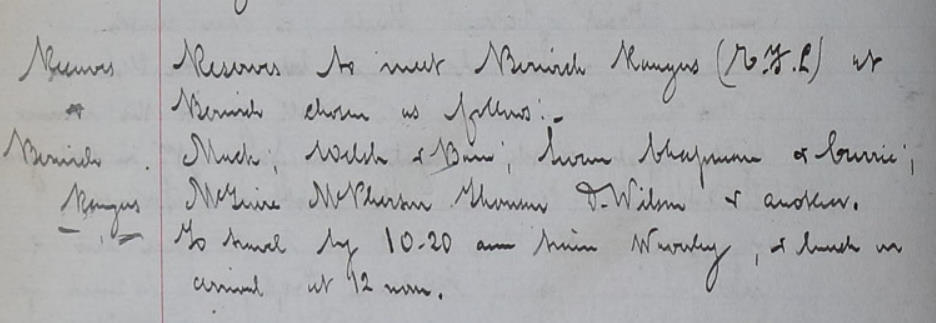 Reserves Reserves to meet Berwick Rangers (N.F.L) at
v Berwick chosen as follows:-
Berwick Mack; Welch & Bain; Chapman & Currie;
Rangers McGuire McPherson Thomson D. Wilson & another.
To travel by 10-20 am train Waverley, & lunch on
arrival at 12 noon.